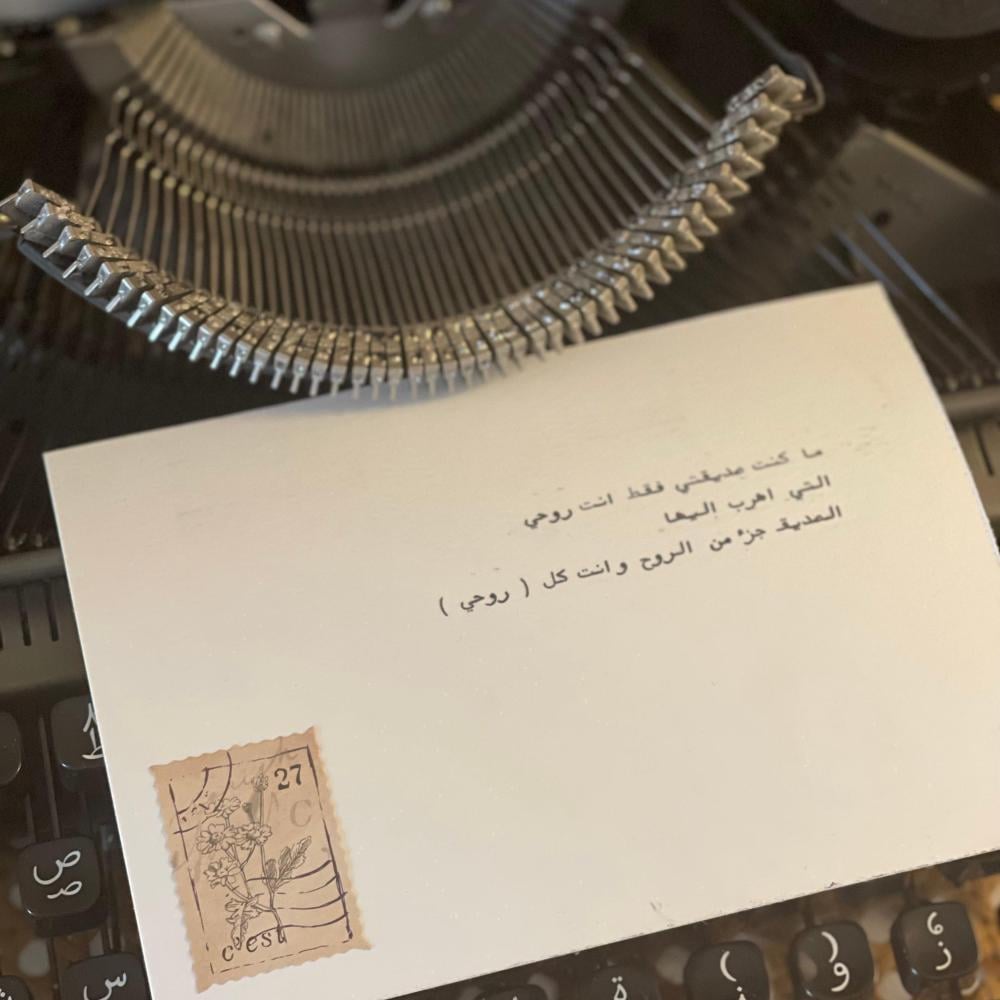 ما كنت صديقتي فقط انت روحي
التي اهرب اليها
الصديق جزء من الروح و انت كل ( روحي )
27
c'est
ص
س
و